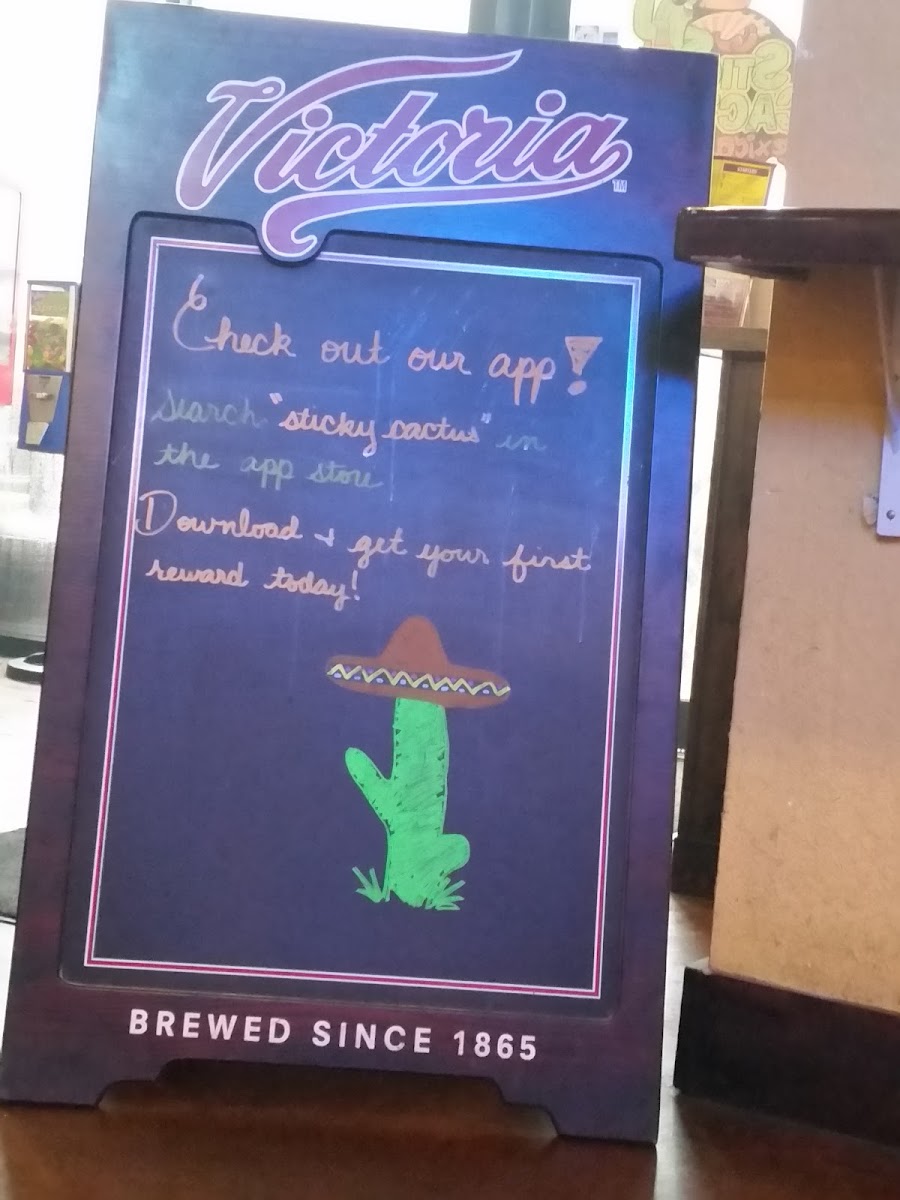 Victoria
TM
Check out our app!
Search "sticky cactus" in
the app store
Download + get your first
reward today!
BREWED SINCE 1865